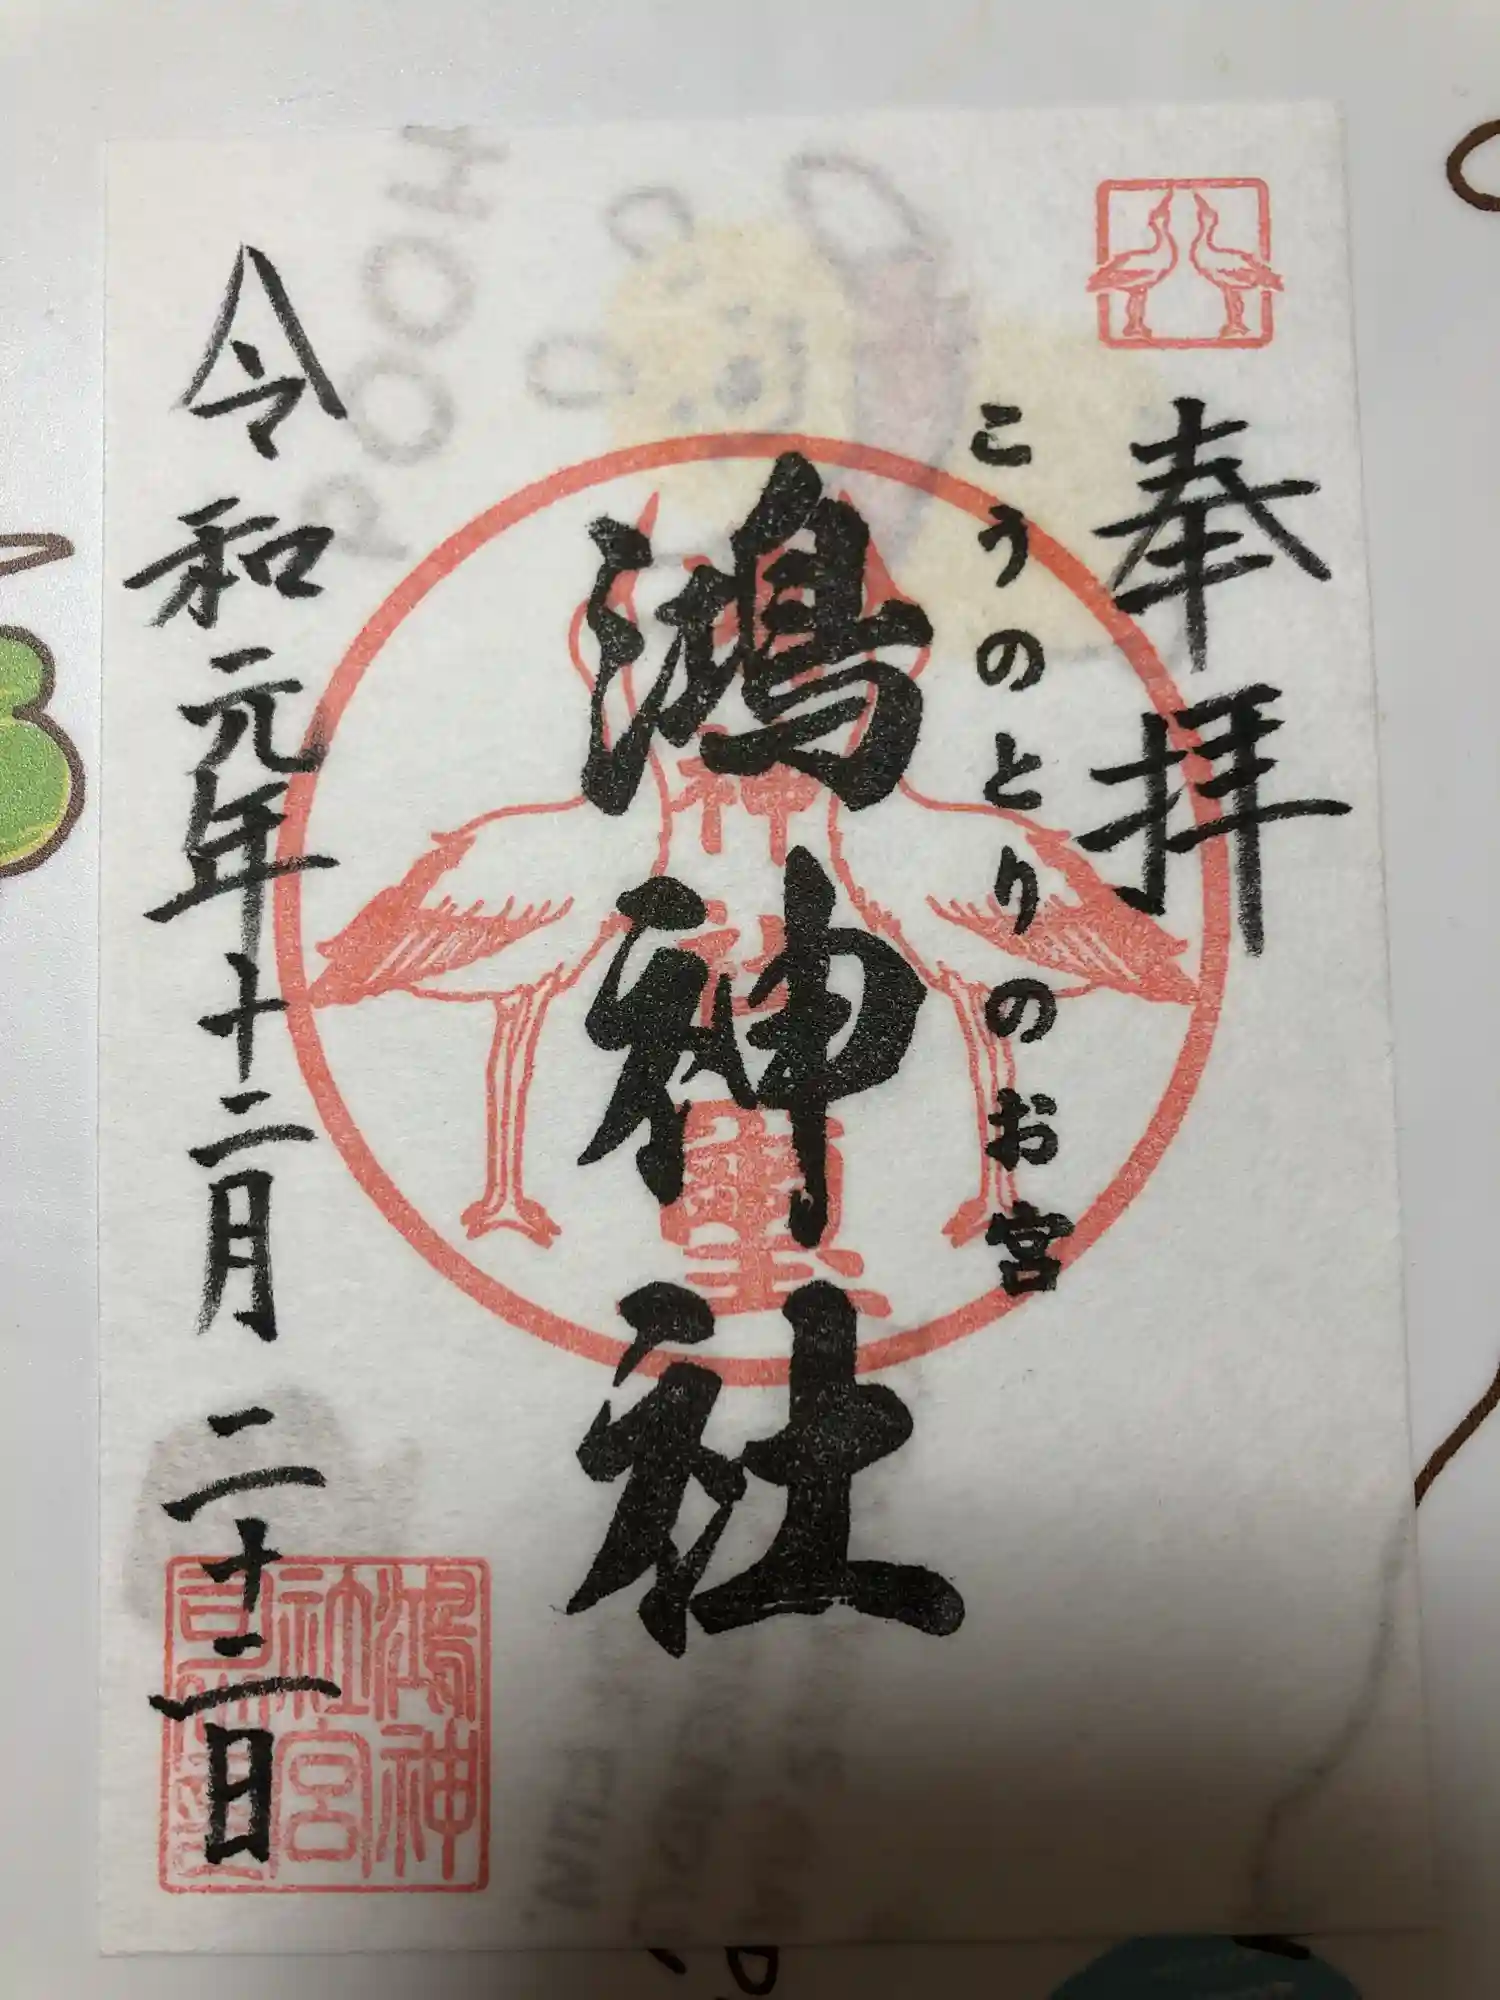 奉拝
こうのとりのお宮
鴻神社
神社
璽
令和元年十二月二十二日
鴻神
社宮
司
POOH